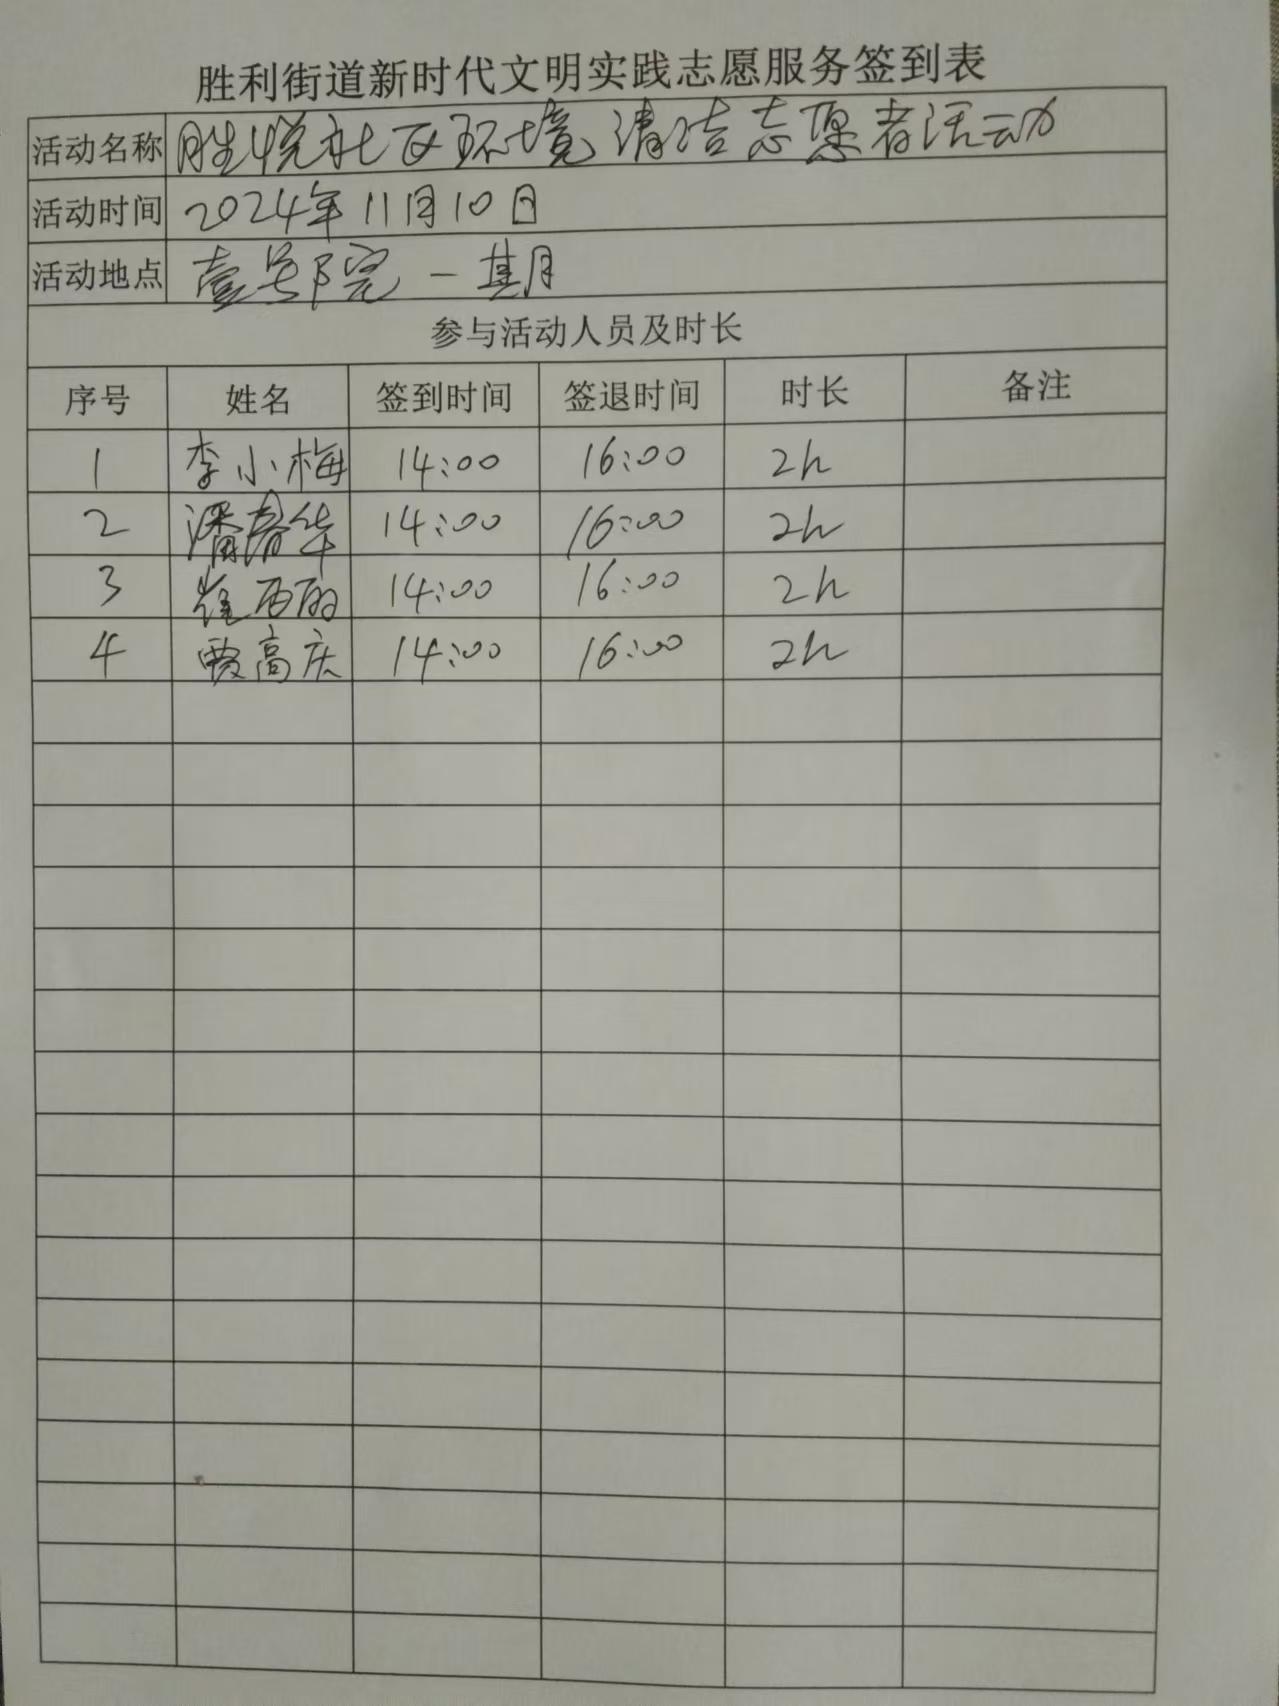 胜利街道新时代文明实践志愿服务签到表
活动名称 胜悦社区环境清洁志愿者活动
活动时间 2024年11月10日
活动地点 壹号院一期
参与活动人员及时长
序号 姓名 签到时间 签退时间 时长 备注
1 李小梅 14:00 16:00 2h
2 潘春华 14:00 16:00 2h
3 崔西丽 14:00 16:00 2h
4 贾高庆 14:00 16:00 2h